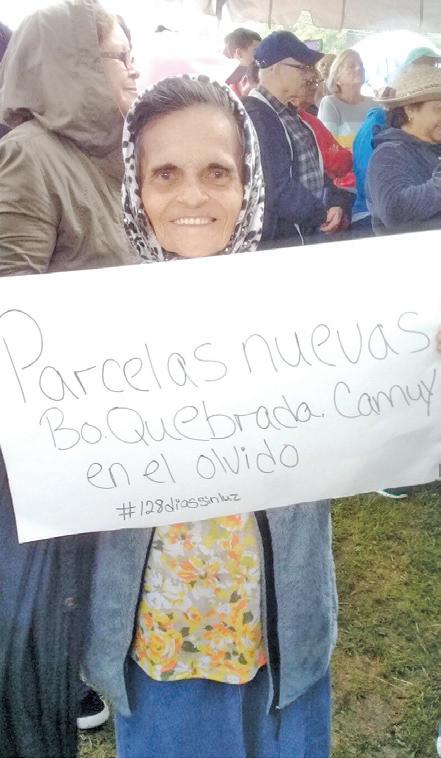 Parcelas nuevas
Bo. Quebrada. Camuy
en el olvido
#128diassinluz